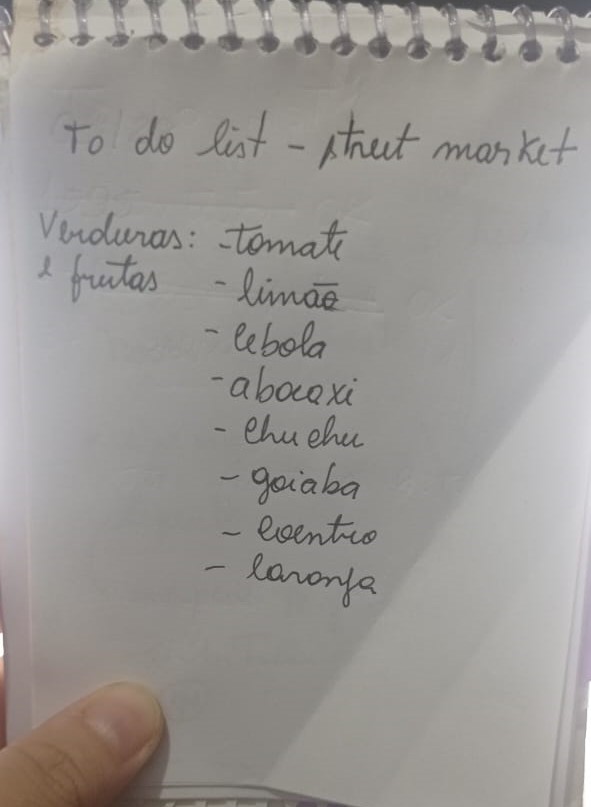 To do list - street market
Verduras: - tomate
e frutas - limão
- cebola
- abacaxi
- chuchu
- goiaba
- coentro
- laranja